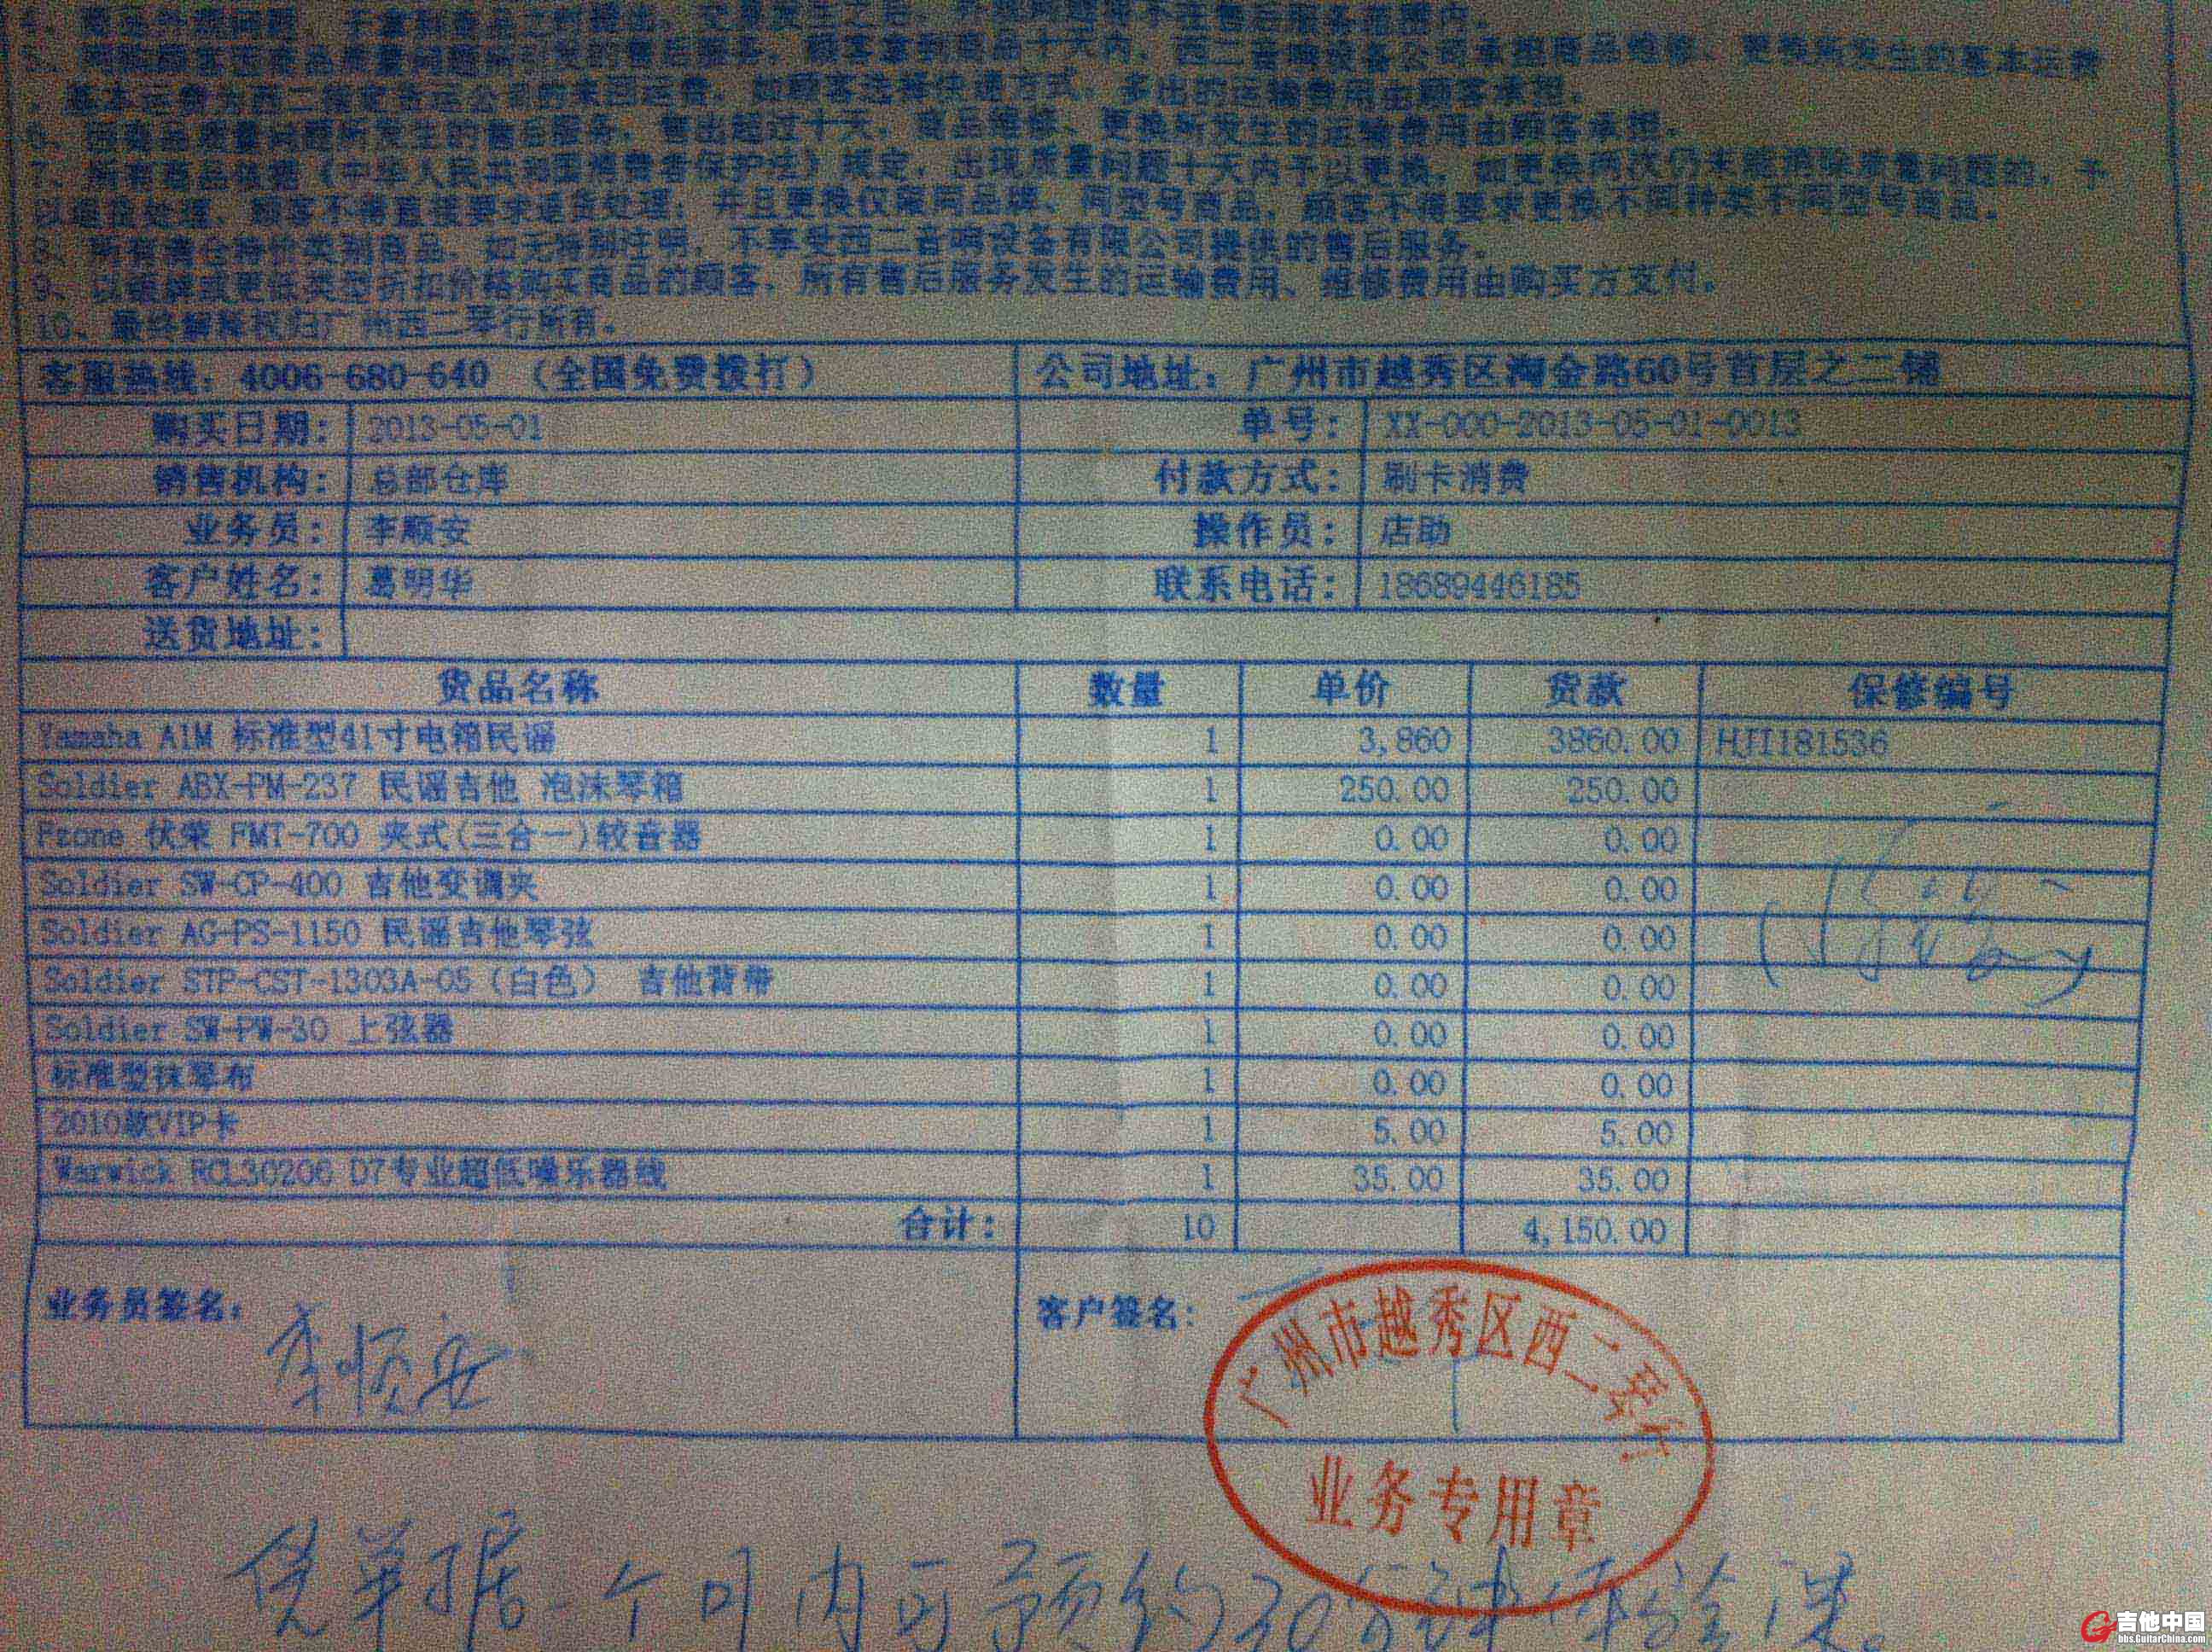 基本运费为西二指定货运公司的来回运费,如顾客选择快速方式,多出的运输费用由顾客承担。
6、因商品质量问题所发生的售后服务,售出超过十天,商品维修、更换所发生的运输费用由顾客承担。
7、所有商品依据《中华人民共和国消费者保护法》规定,出现质量问题十天内予以更换,如更换两次仍未能消除质量问题的,予
以退货处理,顾客不得直接要求退货处理;并且更换仅限同品牌、同型号商品,顾客不得要求更换不同种类不同型号商品。
8、所有舞台特价类别商品,如无特别注明,不享受西二音响设备有限公司提供的售后服务。
9、以或更低类型折扣价格购买商品的顾客,所有售后服务发生的运输费用、维修费用由购买方支付。
10、最终解释权归广州西二琴行所有。
客服热线:4006-680-640 (全国免费拨打) 公司地址:广州市越秀区淘金路60号首层之二铺
购买日期: 2013-05-01 单号: XX-000-2013-05-01-0013
销售机构: 总部仓库 付款方式: 刷卡消费
业务员: 李顺安 操作员: 店助
客户姓名: 葛明华 联系电话: 18689446185
送货地址:
货品名称 数量 单价 货款 保修编号
Yamaha A1M 标准型41寸电箱民谣 1 3,860 3860.00 HJI181536
Soldier ABX-PM-237 民谣吉他 泡沫琴箱 1 250.00 250.00
Fzone 伏荣 FMT-700 夹式(三合一)较音器 1 0.00 0.00
Soldier SW-CP-400 吉他变调夹 1 0.00 0.00
Soldier AG-PS-1150 民谣吉他琴弦 1 0.00 0.00
Soldier STP-CST-1303A-05(白色) 吉他背带 1 0.00 0.00
Soldier SW-PW-30 上弦器 1 0.00 0.00
标准型抹琴布 1 0.00 0.00
2010款VIP卡 1 5.00 5.00
Warwick RCL30206 D7专业超低噪乐器线 1 35.00 35.00
合计: 10 4,150.00
业务员签名: 李顺安 客户签名:
广州市越秀区西二琴行
业务专用章
凭单据一个月内可预约30分钟体验课。
吉他中国
bbs.GuitarChina.com